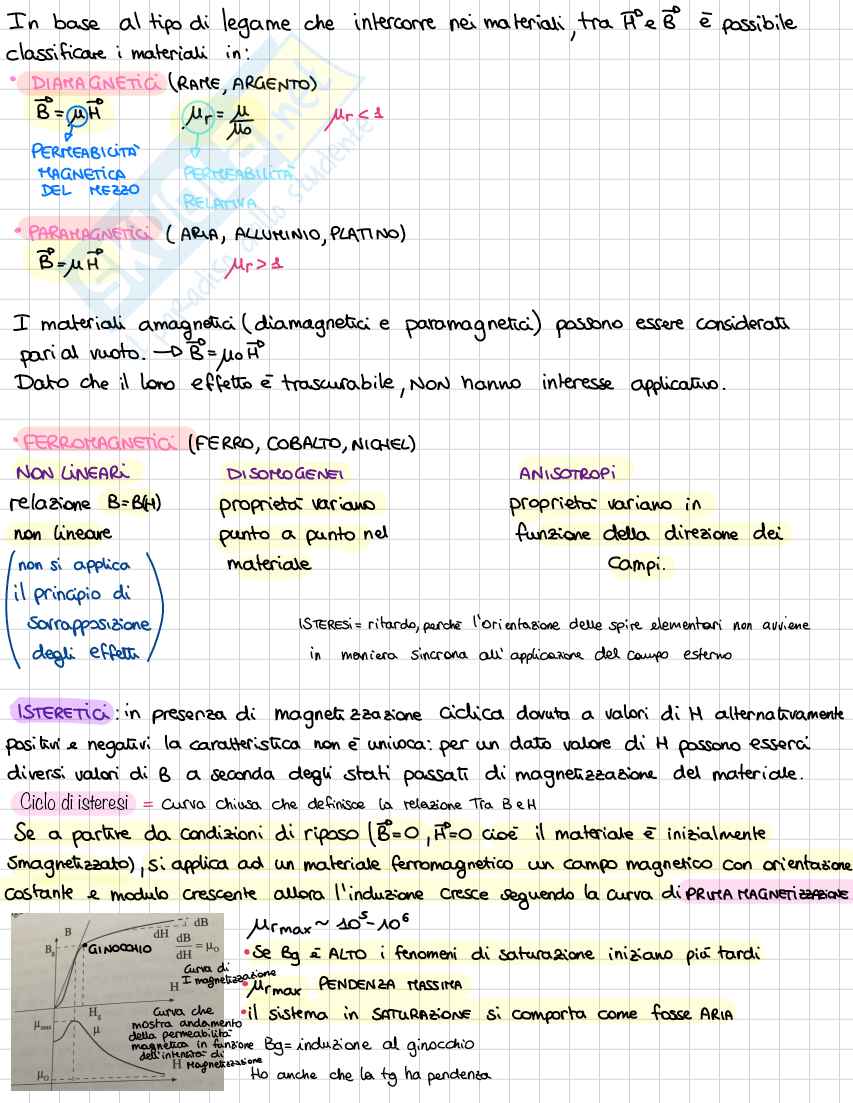 In base al tipo di legame che intercorre nei materiali, tra H e B è possibile
classificare i materiali in:
• DIAMAGNETICI (RAME, ARGENTO)
B = μH μr = μ/μ0 μr < 1
PERMEABILITÀ MAGNETICA DEL MEZZO
PERMEABILITÀ RELATIVA
• PARAMAGNETICI (ARIA, ALLUMINIO, PLATINO)
B = μH μr > 1
I materiali amagnetici (diamagnetici e paramagnetici) possono essere considerati
pari al vuoto. → B = μ0 H
Dato che il loro effetto è trascurabile, NON hanno interesse applicativo.
• FERROMAGNETICI (FERRO, COBALTO, NICHEL)
NON LINEARI
relazione B=B(H)
non lineare
(non si applica
il principio di
sovrapposizione
degli effetti)
DISOMOGENEI
proprietà variano
punto a punto nel
materiale
ANISOTROPI
proprietà variano in
funzione della direzione dei
campi.
ISTERESI = ritardo, perchè l'orientazione delle spire elementari non avviene
in maniera sincrona all'applicazione del campo esterno
ISTERETICI: in presenza di magnetizzazione ciclica dovuta a valori di H alternativamente
positivi e negativi la caratteristica non è univoca: per un dato valore di H possono esserci
diversi valori di B a seconda degli stati passati di magnetizzazione del materiale.
Ciclo di isteresi = curva chiusa che definisce la relazione Tra B e H
Se a partire da condizioni di riposo (B=0, H=0 cioè il materiale è inizialmente
smagnetizzato), si applica ad un materiale ferromagnetico un campo magnetico con orientazione
costante e modulo crescente allora l'induzione cresce seguendo la curva di PRIMA MAGNETIZZAZIONE
B
Bg
GINOCCHIO
dH
dB
dB/dH = μ0
Curva di
I magnetizzazione
H
Hg
μmax
μ
μ0
Curva che
mostra andamento
della permeabilità
magnetica in funzione
dell'intensità di
Magnetizzazione
H
μrmax ~ 10⁵-10⁶
• Se Bg è ALTO i fenomeni di saturazione iniziano più tardi
• μrmax PENDENZA MASSIMA
• il sistema in SATURAZIONE si comporta come fosse ARIA
Bg = induzione al ginocchio
Ho anche che la tg ha pendenza
SKUOLA.net
il paradiso dello studente